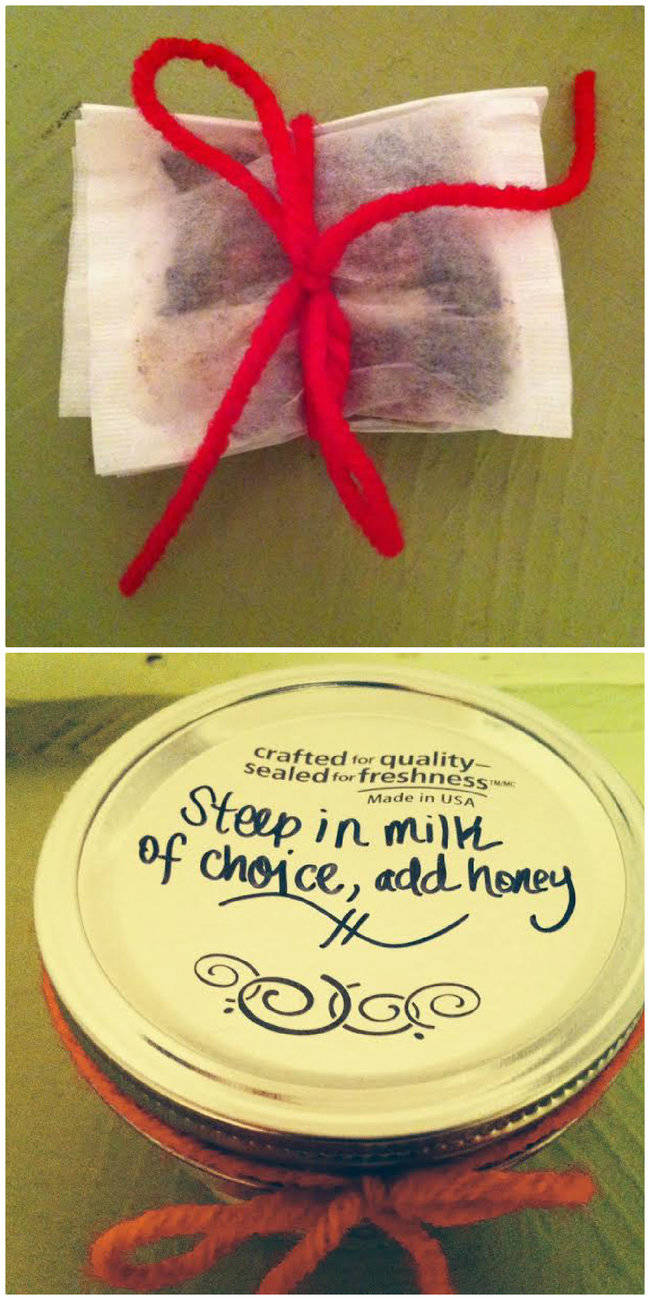 crafted for quality–
sealed for freshness™/MC
Made in USA
Steep in milk
of choice, add honey